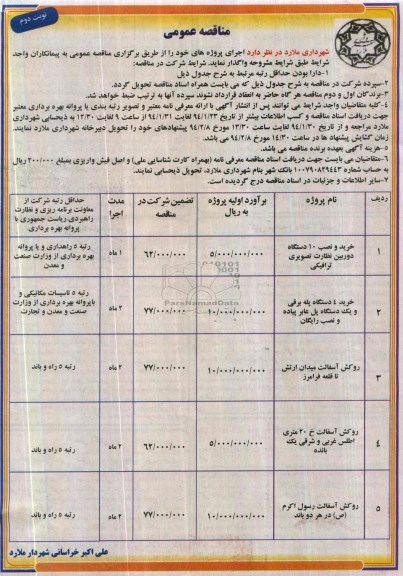 نوبت دوم
مناقصه عمومی
شهرداری ملارد در نظر دارد اجرای پروژه های خود را از طریق برگزاری مناقصه عمومی به پیمانکاران واجد
شرایط طبق شرایط مشروحه واگذار نماید. شرایط شرکت در مناقصه:
۱-دارا بودن حداقل رتبه مرتبط به شرح جدول ذیل
۲-سپرده شرکت در مناقصه به شرح جدول ذیل که می بایست همراه اسناد مناقصه تحویل گردد.
۳-برندگان اول و دوم مناقصه هر گاه حاضر به انعقاد قرارداد نشوند سپرده آنها به ترتیب ضبط خواهد شد.
۴-کلیه متقاضیان واجد شرایط می توانند پس از انتشار آگهی با ارائه معرفی نامه معتبر و تصویر رتبه بندی یا پروانه بهره برداری معتبر
جهت دریافت اسناد مناقصه و کسب اطلاعات بیشتر از تاریخ ۹۴/۱/۲۳ لغایت ۹۴/۱/۳۱ از ساعت ۹ لغایت ۱۲/۳۰ به ذیحسابی شهرداری
ملارد مراجعه و از تاریخ ۹۴/۱/۳۰ لغایت ساعت ۱۳/۳۰ مورخ ۹۴/۲/۸ پیشنهادهای خود را تحویل دبیرخانه شهرداری ملارد نمایند.
زمان گشایش پیشنهاد ها در ساعت ۱۴/۳۰ مورخ ۹۴/۲/۸ می باشد.
۵-هزینه آگهی بعهده برنده مناقصه می باشد.
۶-متقاضیان می بایست جهت دریافت اسناد مناقصه معرفی نامه (بهمراه کارت شناسایی ملی) و اصل فیش واریزی بمبلغ ۲۰۰/۰۰۰ ریال
به حساب شماره ۱۰۰۷۹۰۸۲۹۴۴۳ بانک شهر بنام شهرداری ملارد، تحویل ذیحسابی نمایند.
۷-سایر اطلاعات و جزئیات در اسناد مناقصه درج گردیده است.
ردیف
نام پروژه
برآورد اولیه پروژه
به ریال
تضمین شرکت در
مناقصه
مدت
اجرا
حداقل رتبه شرکت از
معاونت برنامه ریزی و نظارت
راهبردی ریاست جمهوری یا
پروانه بهره برداری
۱
خرید و نصب ۱۰ دستگاه
دوربین نظارت تصویری
ترافیکی
۵/۰۰۰/۰۰۰/۰۰۰
۶۲/۰۰۰/۰۰۰
۱ ماه
رتبه ۵ راهداری و یا پروانه
بهره برداری از وزارت صنعت
و معدن
۲
خرید ۴ دستگاه پله برقی
و یک دستگاه پل عابر پیاده
و نصب رایگان
۱۰/۰۰۰/۰۰۰/۰۰۰
۷۷/۰۰۰/۰۰۰
۲ ماه
رتبه ۵ تاسیسات مکانیکی و
یاپروانه بهره برداری از وزارت
صنعت و معدن و تجارت
ParsNamadData
۳
روکش آسفالت میدان ارتش
تا قلعه فرامرز
۱۰/۰۰۰/۰۰۰/۰۰۰
۷۷/۰۰۰/۰۰۰
۲ ماه
رتبه ۵ راه و باند
۴
روکش آسفالت خ ۲۰ متری
اطلس غربی و شرقی یک
بانده
۵/۰۰۰/۰۰۰/۰۰۰
۶۲/۰۰۰/۰۰۰
۲ ماه
رتبه ۵ راه و باند
۵
روکش آسفالت رسول اکرم
(ص) در هر دو باند
۱۰/۰۰۰/۰۰۰/۰۰۰
۷۷/۰۰۰/۰۰۰
۲ ماه
رتبه ۵ راه و باند
علی اکبر خراسانی شهردار ملارد